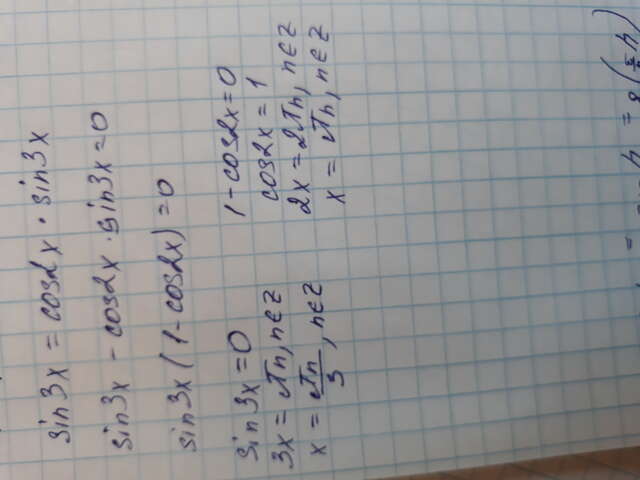 sin3x = cos2x · sin3x
sin3x - cos2x · sin3x = 0
sin3x(1-cos2x) = 0
sin3x = 0
3x = πn, n∈Z
x = πn/3, n∈Z
1-cos2x = 0
cos2x = 1
2x = 2πn, n∈Z
x = πn, n∈Z